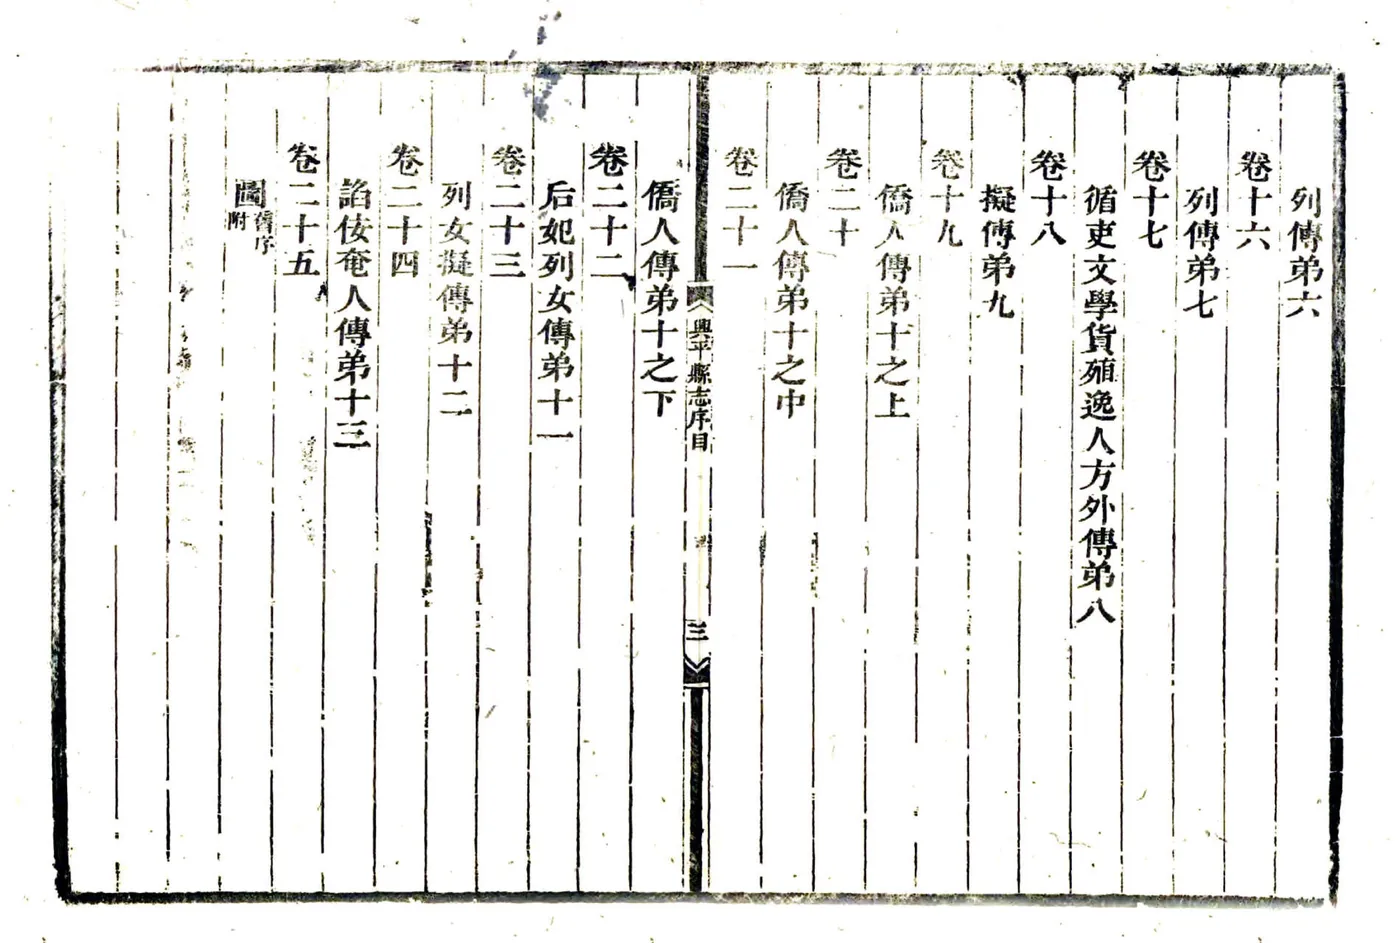 列傳弟六
卷十六
列傳弟七
卷十七
循吏文學貨殖逸人方外傳弟八
卷十八
擬傳弟九
卷十九
僑人傳弟十之上
卷二十
僑人傳弟十之中
卷二十一
興平縣志序目
三
僑人傳弟十之下
卷二十二
后妃列女傳弟十一
卷二十三
列女擬傳弟十二
卷二十四
諂佞奄人傳弟十三
卷二十五
圖舊序附